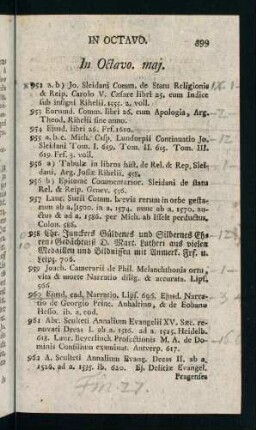 IN OCTAVO. 899
In Octavo. maj.
952 a. b) Jo. Sleidani Comm. de Statu Religionis
& Reip. Carolo V. Cæsare libri 25. cum Indice
sub insigni Rihelii. 2. voll.
953 Eorund. Comm. libri 26. cum Apologia, Arg.
Theod. Rihelii sine anno.
954 Ejusd. libri 26. Frf. 1610.
955 a. b. c. Mich. Casp. Lundorpii Continuatio Jo.
Sleidani Tom. I. 619. Tom. II. 615. Tom. III.
619. Frf. 3. voll.
956 a) Tabulæ in libros hist. de Rel. & Rep. Slei-
dani, Arg. Josiæ Rihelii. 558.
956 b) Epitome Commentarior. Sleidani de statu
Rel. & Reip. Genev. 556.
957 Laur. Surii Comm. brevis rerum in orbe gesta-
rum ab a. 1500. in a. 1574. nunc ab a. 1570. au-
ctus & ad a. 1586. per Mich. ab Isselt perductus,
Colon. 586.
958 Chr. Junckers Güldenes und Silbernes Eh-
ren-Gedächtniß D. Mart. Lutheri aus vielen
Medaillen und Bildnissen mit Anmerk. Frf. u.
Leipz. 706.
959 Joach. Camerarii de Phil. Melanchthonis ortu,
vita & morte Narratio dilig. & accurata. Lips.
566
960 Ejusd. ead. Narratio. Lips. 695. Ejusd. Narra-
tio de Georgio Princ. Anhaltino, & de Eobano
Hesso. ib. a. eod.
961 Abr. Sculteti Annalium Evangelii XV. Sec. re-
novati Decas I. ab a. 1516. ad a. 1525. Heidelb.
618. Laur. Beyerlinck Profectionis M. A. de Do-
minis Consilium examinat. Antverp. 617.
962 A. Sculteti Annalium Evang. Decas II. ab a.
1526. ad a. 1535. ib. 620. Ej. Deliciæ Evangel.
Pragenses